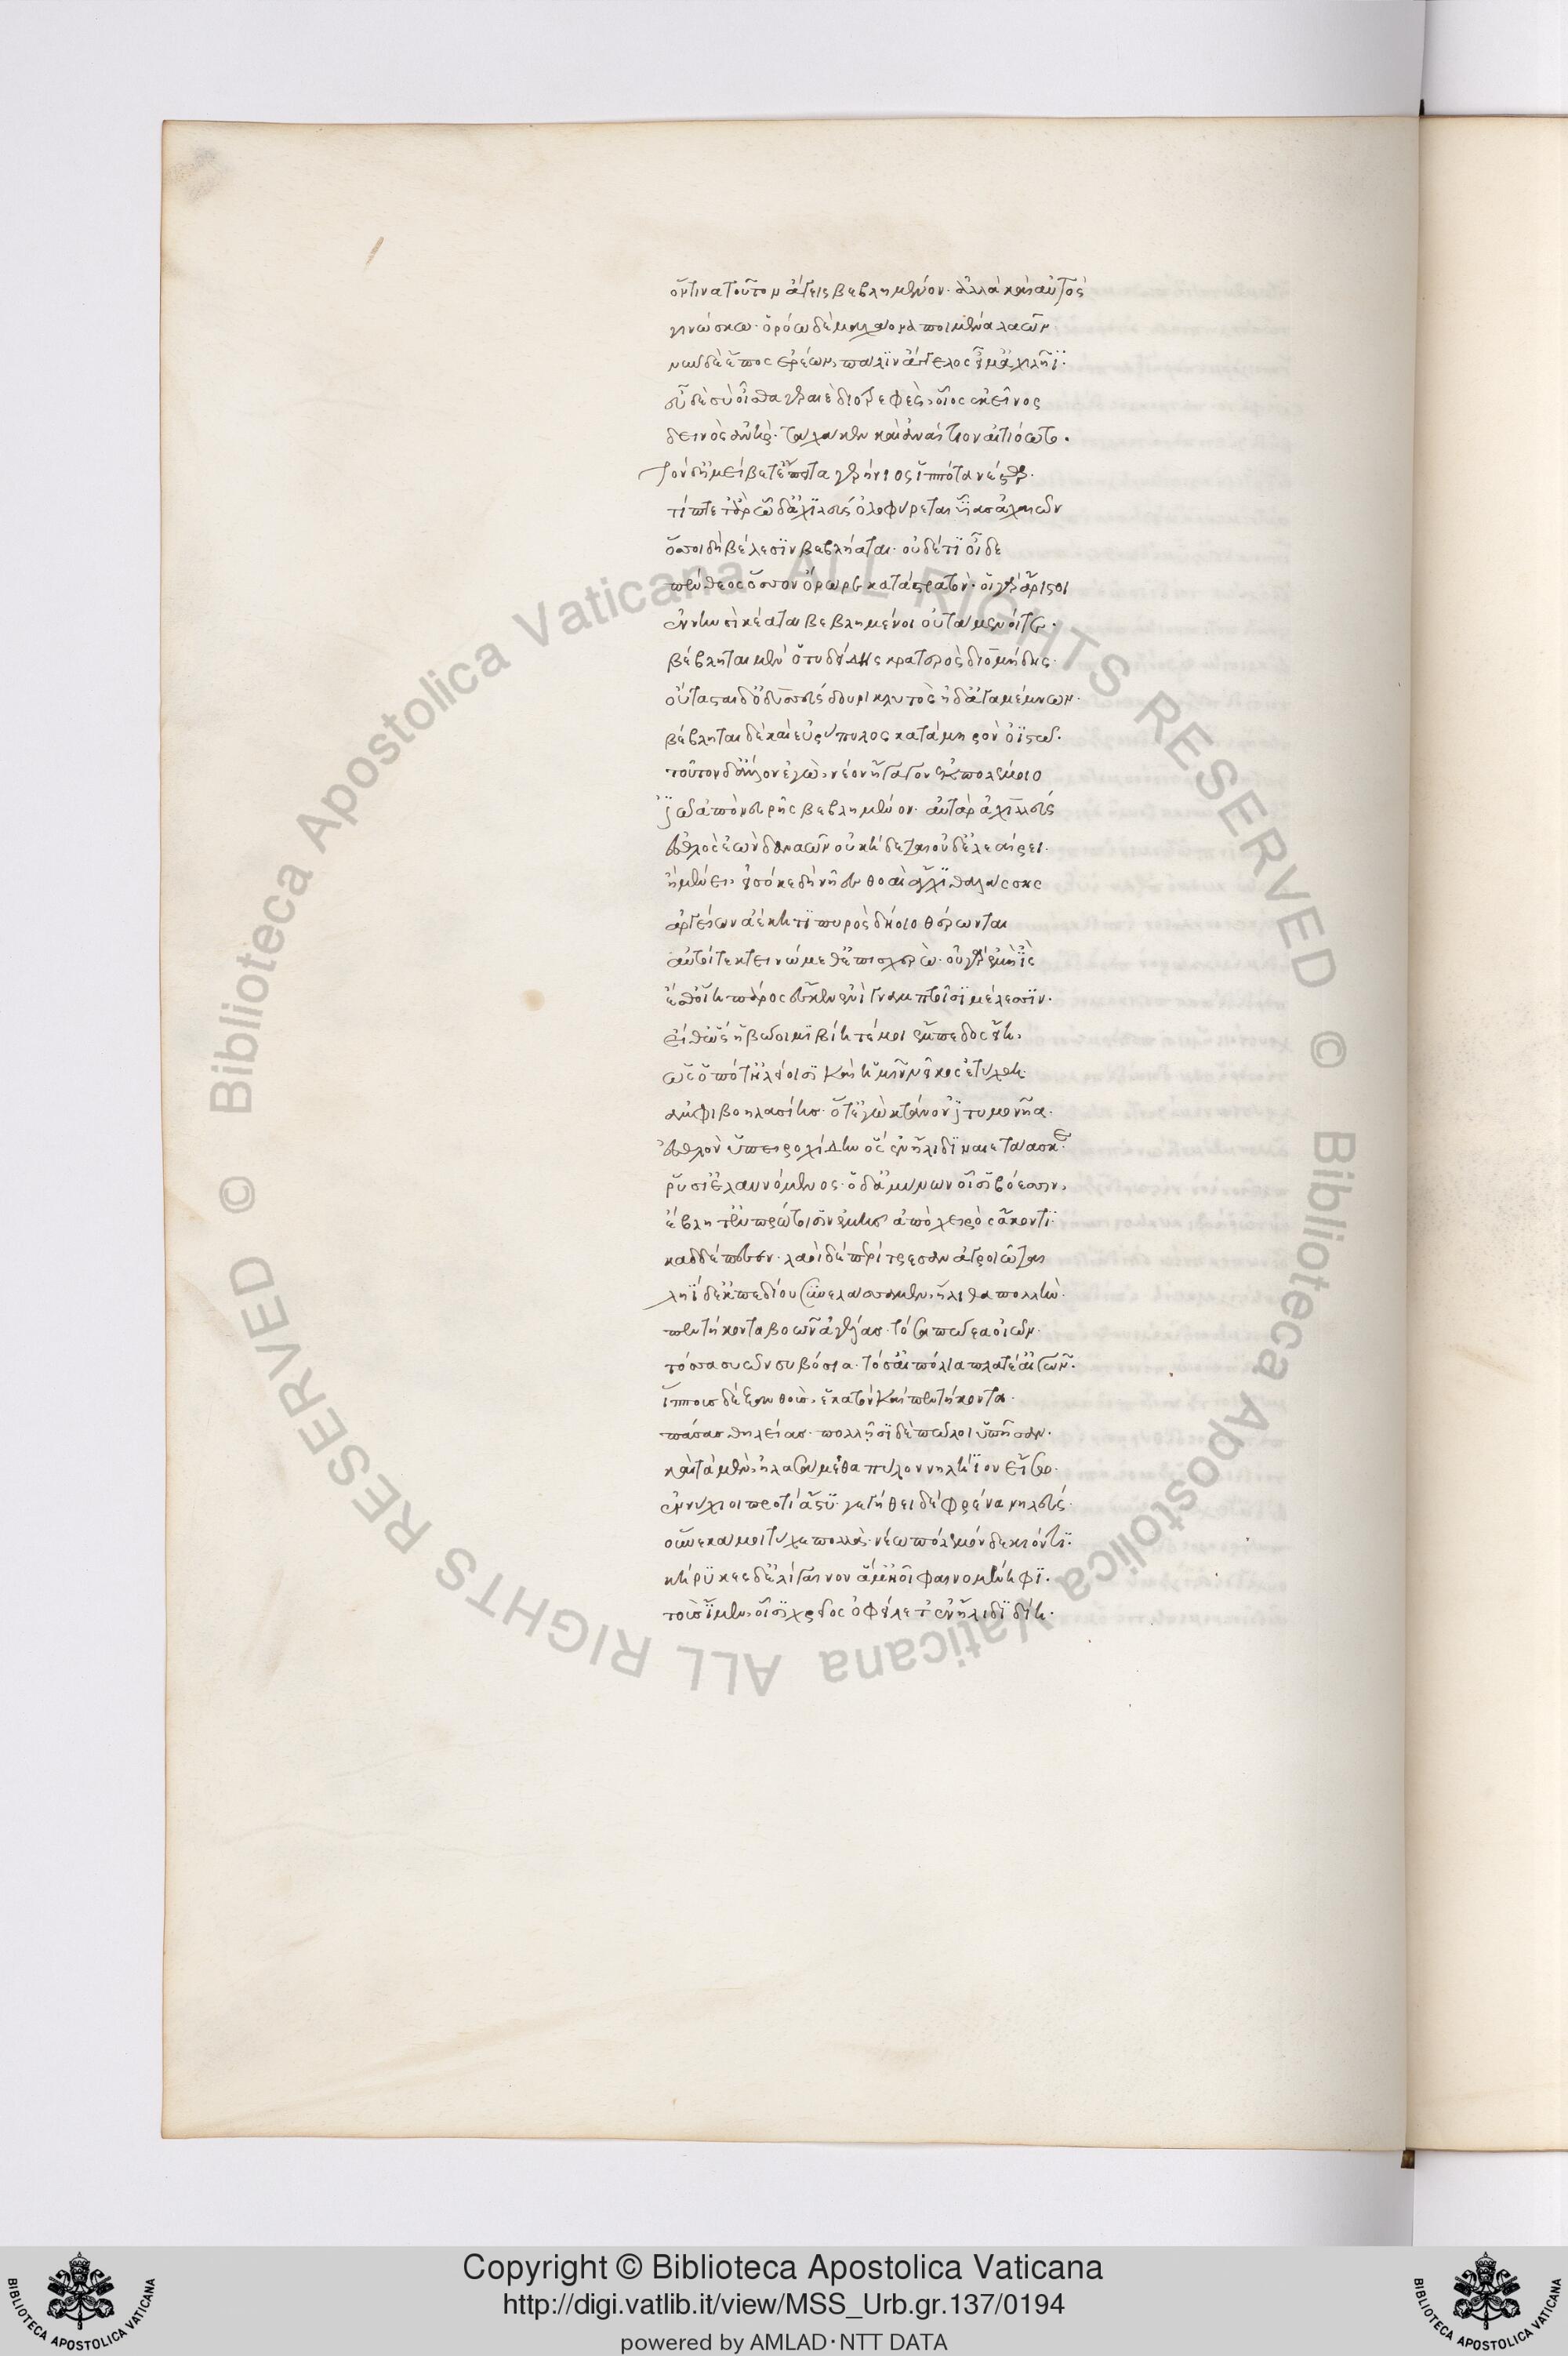 ὅντινα τοῦτον ἄγεις βεβλημένον· ἀλλὰ καὶ αὐτὸς
γινώσκω· ὁρόω δὲ μαχάονα ποιμένα λαῶν
νῦν δὲ ἔπος ἐρέων, πάλιν ἄγγελος εἶμ' ἀχιλῆϊ·
εὖ δὲ σὺ οἶσθα γεραιὲ διοτρεφές, οἷος ἐκεῖνος
δεινὸς ἀνήρ· τάχα κεν καὶ ἀναίτιον αἰτιόωτο·
τὸν δ' ἠμείβετ' ἔπειτα γερήνιος ἱππότα νέστωρ·
τίπτε τὰρ ὧδ' ἀχιλεὺς ὀλοφύρεται υἷας ἀχαιῶν
ὅσσοι δὴ βέλεσιν βεβλήαται· οὐδέ τι οἶδε
πένθεος ὅσσον ὄρωρε κατὰ στρατόν· οἱ γὰρ ἄριστοι
ἐν νηυσὶ κέαται βεβλημένοι οὐτάμενοί τε·
βέβληται μὲν ὁ τυδείδης κρατερὸς διομήδης·
οὔτασται δ' ὀδυσσεὺς δουρικλυτὸς ἠδ' ἀγαμέμνων·
βέβληται δὲ καὶ εὐρύπυλος κατὰ μηρὸν ὀϊστῷ·
τοῦτον δ' ἄλλον ἐγὼ, νέον ἤγαγον ἐκ πολέμοιο
ἰῷ ἀπὸ νευρῆς βεβλημένον· αὐτὰρ ἀχιλλεὺς
ἐσθλὸς ἐὼν δαναῶν οὐ κήδεται οὐδ' ἐλεαίρει·
ἢ μένει, εἰσόκε δὴ νῆες θοαὶ ἄγχι θαλάσσης
ἀργείων ἀέκητι πυρὸς δηίοιο θέρωνται
αὐτοί τε κτεινώμεθ' ἐπισχερώ· οὐ γὰρ ἐμὴ ἲς
ἔσθ' οἵη πάρος ἔσκεν ἐνὶ γναμπτοῖσι μέλεσσιν·
εἴθ' ὣς ἡβώοιμι βίη τέ μοι ἔμπεδος εἴη,
ὡς ὁπότ' ἠλείοισι καὶ ἡμῖν νεῖκος ἐτύχθη
ἀμφὶ βοηλασίῃ· ὅτ' ἐγὼ κτάνον ἰτυμονῆα·
ἐσθλὸν ὑπειροχίδην ὃς ἐν ἤλιδι ναιετάασκε·
ῥύσι' ἐλαυνόμενος· ὁ δ' ἀμύνων οἷσι βόεσσιν,
ἔβλητ' ἐν πρώτοισιν ἐμῆς ἀπὸ χειρὸς ἄκοντι·
καδδέπεσεν· λαοὶ δὲ περίτρεσαν ἀγροιῶται
ληΐδα δ' ἐκ πεδίου συνελάσσαμεν, ἤλιθα πολλήν·
πεντήκοντα βοῶν ἀγέλας· τόσα πώεα οἰῶν·
τόσσα συῶν συβόσια· τόσ' αἰπόλια πλατέ' αἰγῶν·
ἵππους δὲ ξανθὰς, ἑκατὸν καὶ πεντήκοντα·
πάσας θηλείας· πολλῇσι δὲ πῶλοι ὑπῆσαν·
καὶ τὰ μὲν, ἠλάσαμεσθα πύλον νηλήϊον εἴσω·
ἐννύχιοι προτὶ ἄστυ· γεγήθει δὲ φρένα νηλεύς·
οὕνεκά μοι τύχε πολλὰ· νέῳ πόλεμόνδε κιόντι·
κήρυκες δ' ἐλίγαινον ἅμ' ἠοῖ φαινομένηφι·
τοὺς ἴμεν, οἷσι χρεῖος ὀφείλετ' ἐν ἤλιδι δίῃ·
Copyright © Biblioteca Apostolica Vaticana
http://digi.vatlib.it/view/MSS_Urb.gr.137/0194
powered by AMLAD·NTT DATA